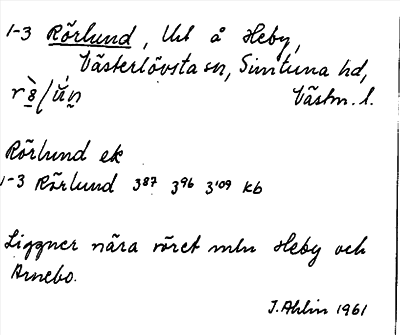 1-3 Rörlund, Ut å Heby,
Västerlövsta sn, Simtuna hd,
Västm. l.
Rörlund ek
1-3 Rörlund 3⁸⁷ 3⁹⁶ 3'⁰⁹ kb
Liggner nära röret mln Heby och
Arnebo.
J. Ahlin 1961